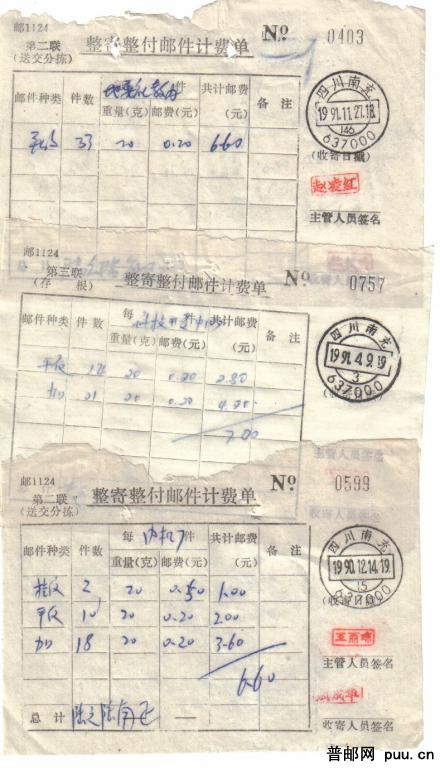 邮1124
第二联
(送交分拣)
整寄整付邮件计费单
№ 0403
邮件种类 件数 每 件 重量(克) 邮费(元) 共计邮费(元) 备注
33 20 0.20 6.60
四川南充
1991.11.27.18
146
637000
(收寄日戳)
赵凌红
主管人员签名
邮1124
第三联
(存根)
整寄整付邮件计费单
№ 0757
邮件种类 件数 每 件 重量(克) 邮费(元) 共计邮费(元) 备注
平 14 20 0.20 2.80
21 20 0.20 4.20
7.00
四川南充
1991.4.9.19
3
637000
主管人员签名
收寄人员签名
邮1124
第二联
(送交分拣)
整寄整付邮件计费单
№ 0599
邮件种类 件数 每 件 重量(克) 邮费(元) 共计邮费(元) 备注
挂 2 20 0.50 1.00
平 10 20 0.20 2.00
18 20 0.20 3.60
6.60
四川南充
1990.12.14.19
15
637000
主管人员签名
总计
收寄人员签名
普邮网 puu.cn